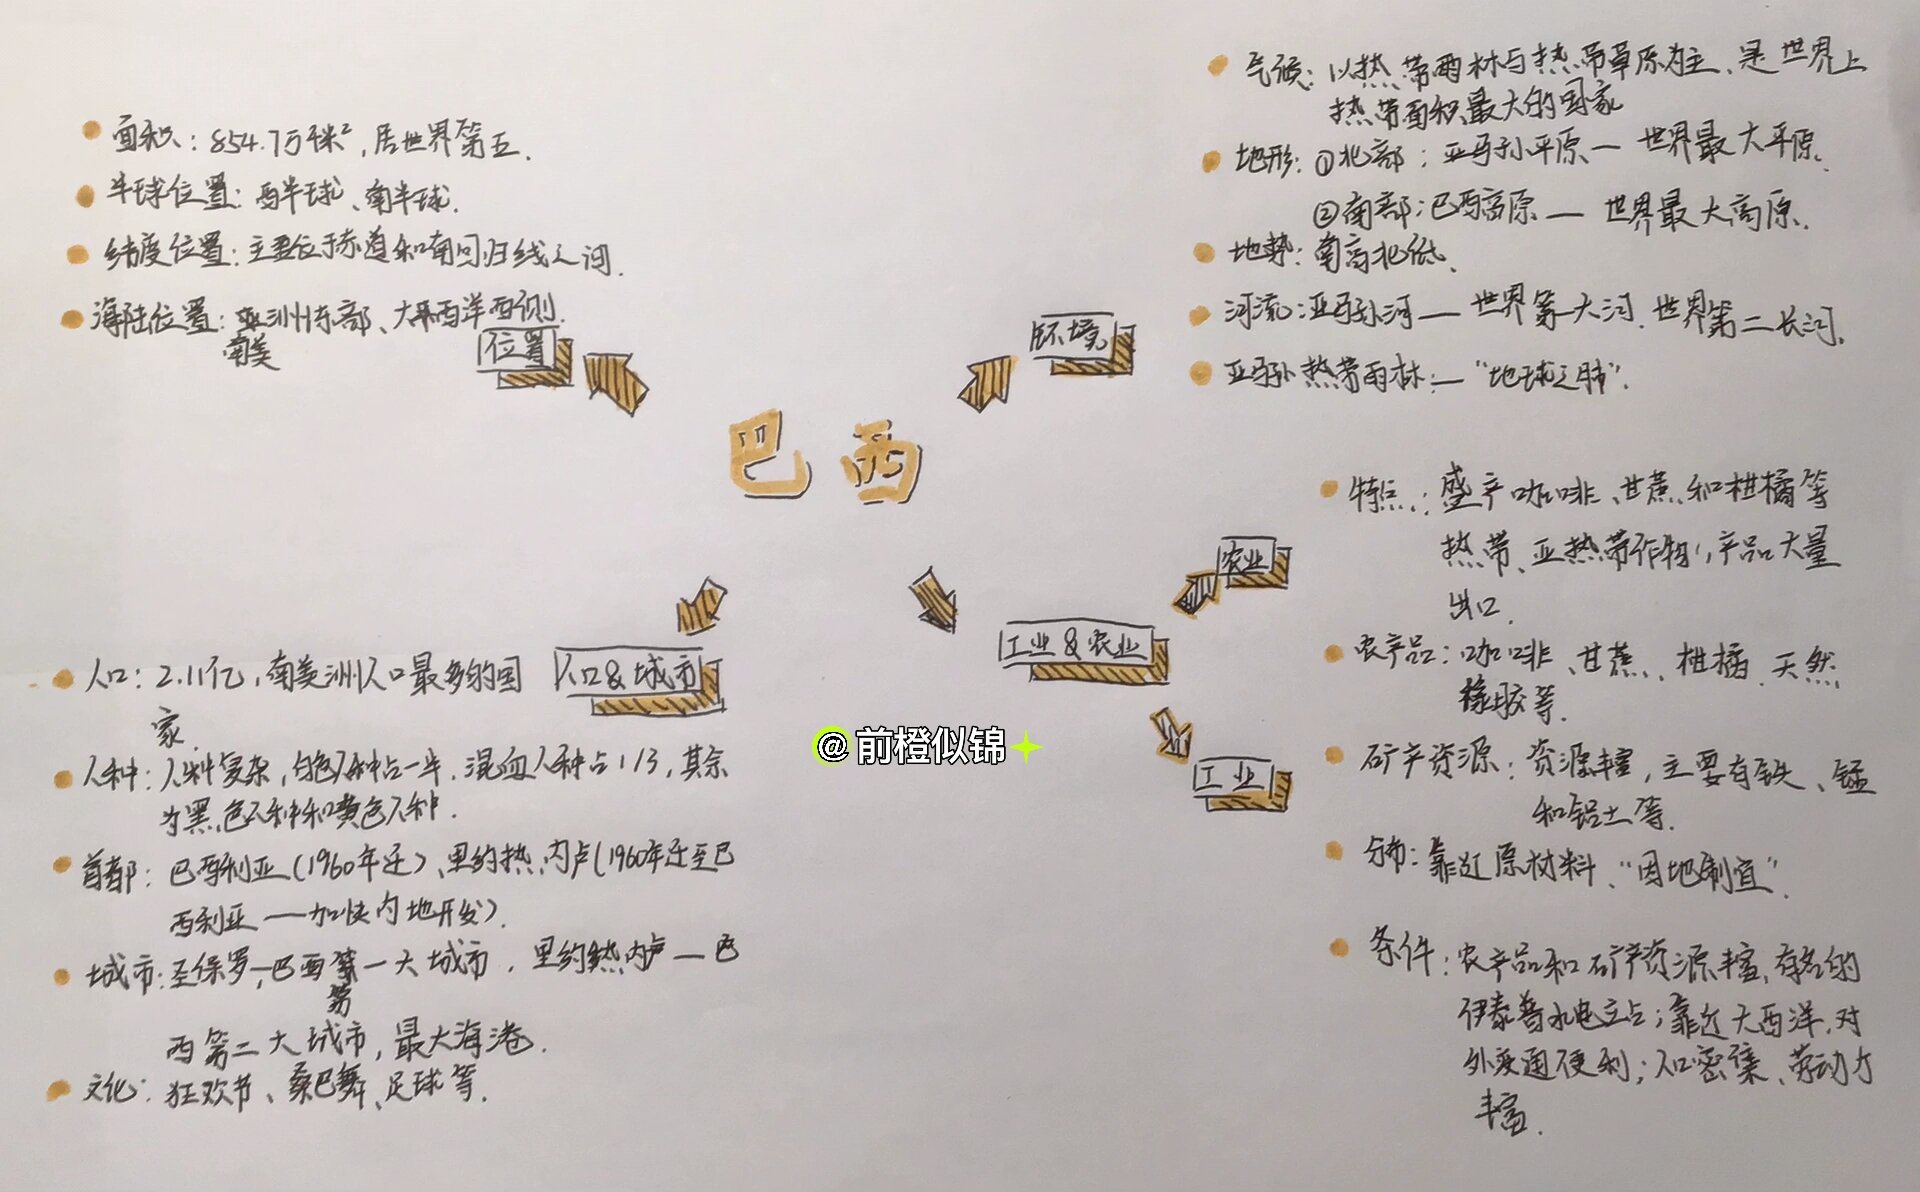 面积：854.7万千米²，居世界第五.
半球位置：西半球、南半球.
纬度位置：主要位于赤道和南回归线之间.
海陆位置：亚洲东部、大西洋西侧.
南美
位置
环境
气候：以热带雨林与热带草原为主、是世界上
热带面积最大的国家
地形：①北部：亚马孙平原—世界最大平原.
②南部：巴西高原—世界最大高原.
地势：南高北低.
河流：亚马孙河—世界第一大河.世界第二长河.
亚马孙热带雨林：—“地球之肺”.
巴西
农业
特点：盛产咖啡、甘蔗和柑橘等
热带、亚热带作物，产品大量
出口.
农产品：咖啡、甘蔗、柑橘、天然
橡胶等.
工业&农业
工业
矿产资源：资源丰富，主要有铁、锰
和铝土等.
分布：靠近原材料、“因地制宜”.
条件：农产品和矿产资源丰富，有名的
伊泰普水电立占；靠近大西洋，对
外交通便利；人口密集、劳动力
丰富.
人口&城市
人口：2.11亿，南美洲人口最多的国
家.
人种：人种复杂，白色人种占一半.混血人种占1/3，其余
为黑色人种和黄色人种.
首都：巴西利亚(1960年迁)、里约热内卢(1960年迁至巴
西利亚——加快内地开发).
城市：圣保罗—巴西第一大城市，里约热内卢—巴
第
西第二大城市，最大海港.
文化：狂欢节、桑巴舞、足球等.
@前橙似锦